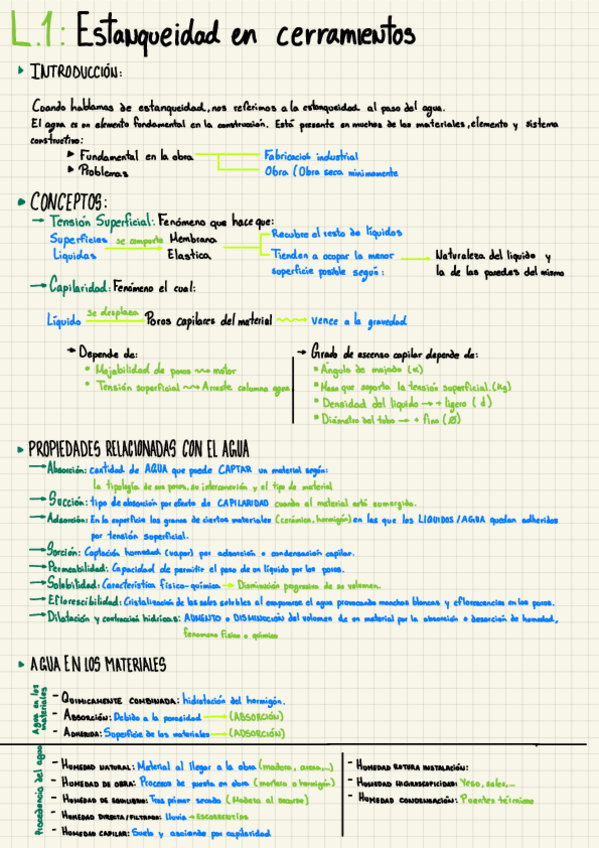 L.1: Estanqueidad en cerramientos
INTRODUCCIÓN:
Cuando hablamos de estanqueidad, nos referimos a la estanqueidad al paso del agua.
El agua es un elemento fundamental en la construcción. Está presente en muchos de los materiales, elemento y sistema
constructivo:
Fundamental en la obra
Fabricación industrial
Problemas
Obra (Obra seca minimamente
CONCEPTOS:
→ Tensión Superficial: Fenómeno que hace que:
Superficies se comporta Membrana
Líquidas Elastica
Recubre el resto de líquidos
Tienden a ocupar la menor
superficie posible según:
Naturaleza del líquido y
la de las paredes del mismo
→ Capilaridad: Fenómeno el cual:
Líquido se desplaza Poros capilares del material vence a la gravedad
→ Depende de:
• Mojabilidad de poros motor
• Tensión superficial Arrastre columna agua
→ Grado de ascenso capilar depende de:
• Ángulo de mojado (α)
• Masa que soporta la tensión superficial. (Kg)
• Densidad del líquido → + ligero (d)
• Diámetro del tubo → + fino (Ø)
PROPIEDADES RELACIONADAS CON EL AGUA
→ Absorción: cantidad de AGUA que puede CAPTAR un material según:
la tipología de sus poros, su interconexión y el tipo de material
→ Succión: tipo de absorción por efecto de CAPILARIDAD cuando el material está sumergido.
→ Adsorción: En la superficie los granos de ciertos materiales (cerámica, hormigón) en las que los LIQUIDOS/AGUA quedan adheridos
por tensión superficial.
→ Sorción: Captación humedad (vapor) por adsorción o condensación capilar.
→ Permeabilidad: Capacidad de permitir el paso de un líquido por los poros.
→ Solubilidad: Característica físico-química → Disminución progresiva de su volumen.
→ Eflorescibilidad: Cristalización de las sales solubles al evaporarse el agua provocando manchas blancas y eflorescencias en los poros.
→ Dilatación y contracción hídricas: AUMENTO o DISMINUCIÓN del volumen de un material por la absorción o desorción de humedad,
fenomeno físico o químico
AGUA EN LOS MATERIALES
Agua en los
materiales
- QUIMICAMENTE COMBINADA: hidratación del hormigón.
- ABSORCIÓN: Debido a la porosidad → (ABSORCIÓN)
- ADHERIDA: Superficie de los materiales → (ADSORCIÓN)
Procedencia del agua
- HUMEDAD NATURAL: Material al llegar a la obra (madera, arena,...)
- HUMEDAD DE OBRA: Procesos de puesta en obra (mortero o hormigón)
- HUMEDAD DE EQUILIBRIO: Tras primer secado (Madera al secarse)
- HUMEDAD DIRECTA/FILTRADA: lluvia → ESCORRENTÍAS
- HUMEDAD CAPILAR: Suelo y asciende por capilaridad
- HUMEDAD ROTURA INSTALACIÓN:
- HUMEDAD HIGROSCOPICIDAD: Yeso, sales,...
- HUMEDAD CONDENSACIÓN: Puentes térmicos